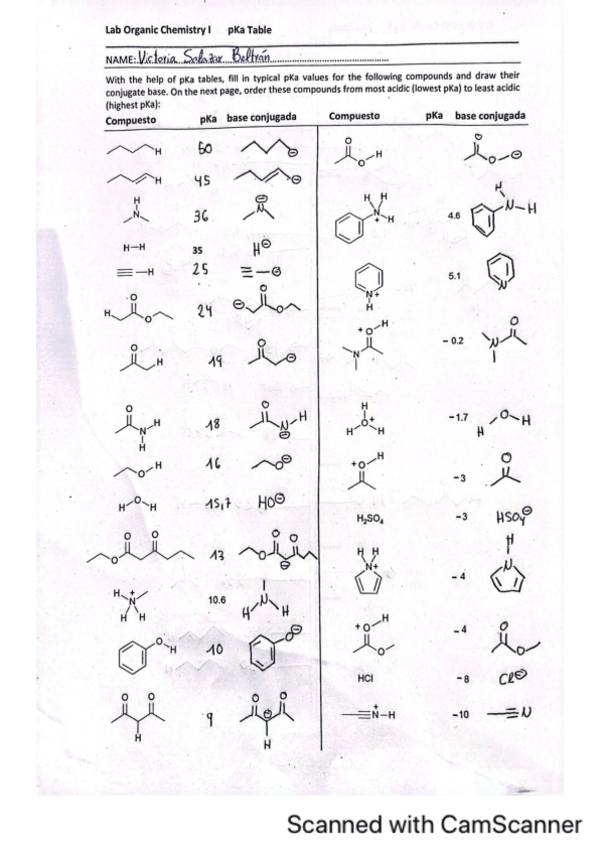 Lab Organic Chemistry I pKa Table
NAME: Victoria Salazar Beltrán
With the help of pKa tables, fill in typical pKa values for the following compounds and draw their
conjugate base. On the next page, order these compounds from most acidic (lowest pKa) to least acidic
(highest pKa):
Compuesto pKa base conjugada Compuesto pKa base conjugada
H 50 ⊖ O O H O O ⊖
H 45 ⊖ H H N + H 4.6 H N-H
H N 36 ⊖ N
H-H 35 H⊖
≡-H 25 ≡-⊖ N+ H 5.1 N
H O O 24 ⊖ O O +O-H N -0.2 O N
O H 19 O ⊖
O N-H H 18 O N-H ⊖ H H-O+-H -1.7 H O-H
O-H 16 O⊖ +O-H -3 O
H-O-H 15,7 HO⊖
H₂SO₄ -3 HSO₄⊖
O O O 13 O O O ⊖ H H N+ -4 H N
H N+ H H 10.6 H-N-H
O-H 10 O⊖ +O-H O -4 O O
HCl -8 Cl⊖
O O H 9 O O ⊖ H ≡N+-H -10 ≡N
Scanned with CamScanner